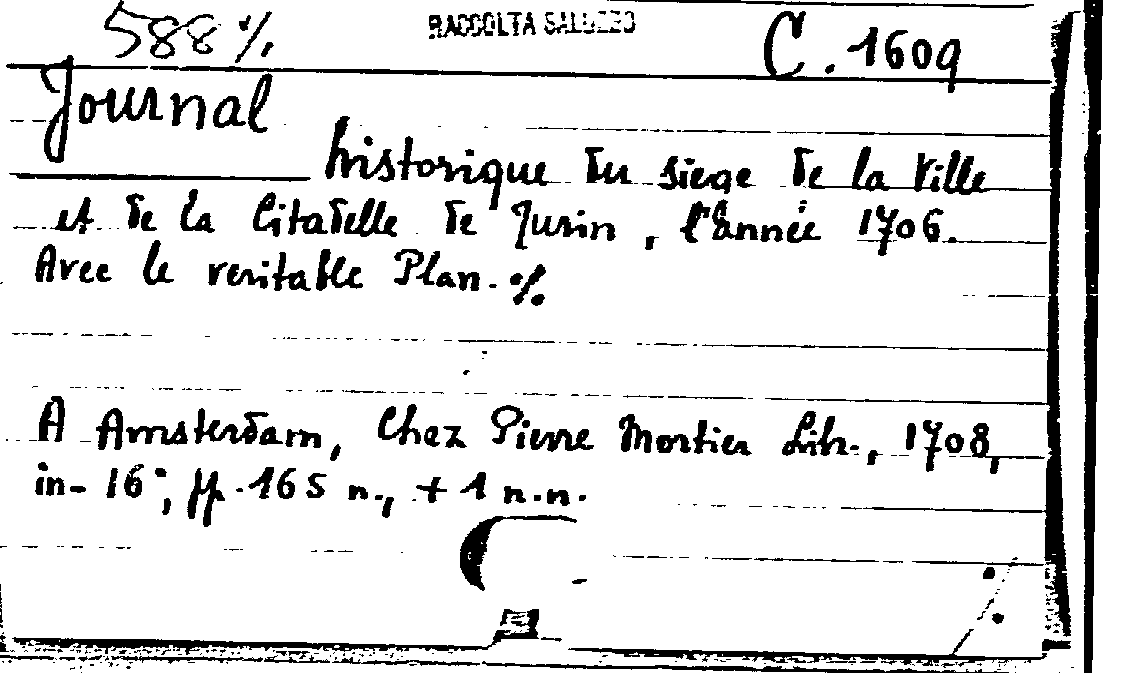 588 ./.
RACCOLTA SALUZZO
C. 1609
Journal
historique du siege de la Ville
et de la Citadelle de Turin, l'année 1706.
Avec le veritable Plan. ./.
A Amsterdam, Chez Pierre Mortier Libr., 1708,
in-16°, pp. 165 n., + 1 n.n.